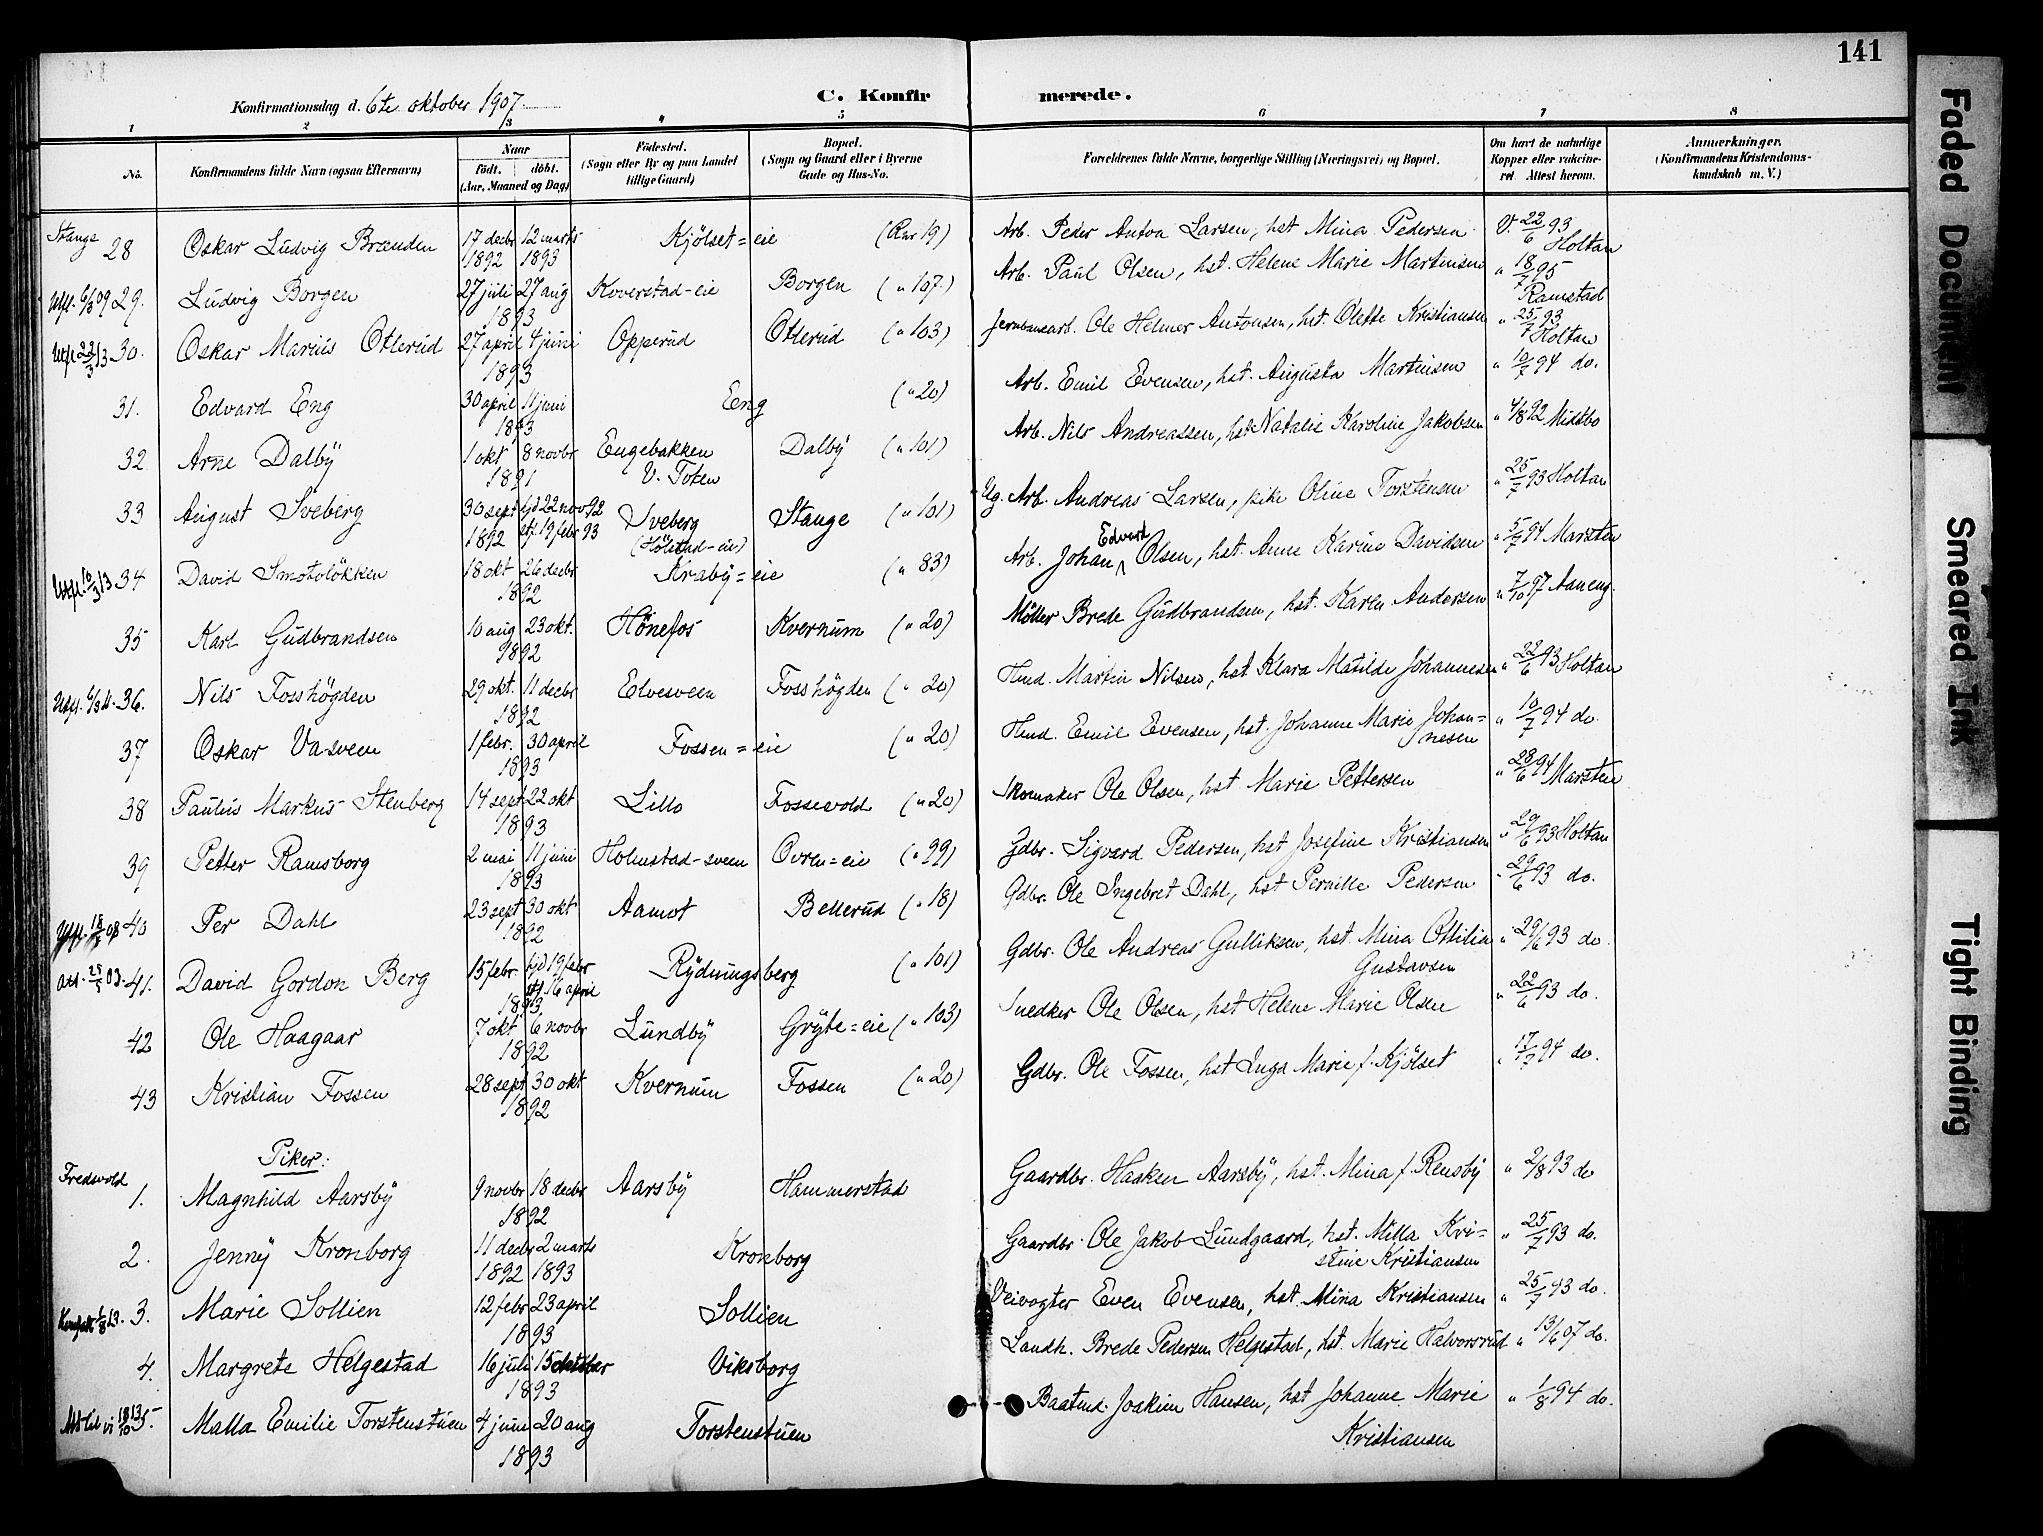 141
Konfirmationsdag d. 6te oktober 1907.
C. Konfirmerede.
1 2 3 4 5 6 7 8
No.
Konfirmandens fulde Navn (ogsaa Efternavn)
Naar
født. döbt.
(Aar, Maaned og Dag)
Födested.
(Sogn eller By og paa Landet
tillige Gaard.)
Bopæl.
(Sogn og Gaard eller i Byerne
Gade og Hus-No.
Forældrenes fulde Navne, borgerlige Stilling (Næringsvei) og Bopæl.
Om havt de naturlige
Kopper eller vaccine-
ret. Attest herom.
Anmerkninger.
(Konfirmandens Kristendoms-
kundskab m. V.)
Stange 28 Oskar Ludvig Brænden 17 decbr 1892 12 marts 1893 Kjölset=eie (Rür 19) Arb. Peder Anton Larsen, hst Mina Pedersen V. 22/6 93 Holtan
29. Ludvig Borgen 27 juli 27 aug 1893 Koverstad-eie Borgen (" 107) Arb. Paul Olsen, hst. Helene Marie Martinsen " 18/7 95 Ramstad
30. Oskar Marius Otterud 27 april 4 juni 1893 Opperud Otterud (" 103) Jernbanearb. Ole Helmer Antonsen, hst. Olette Kristiansen " 25/7 93 Holtan
31. Edvard Eng 30 april 11 juni 1893 Eng (" 20) Arb. Emil Evensen, hst. Augusta Martinsen " 10/7 94 do.
32 Arne Dalby 1 okt 8 novbr 1891 Engebakken V. Toten Dalby (" 101) Arb. Nils Andreassen, hst Natalie Karoline Jakobsen " 4/8 92 Mustbo
33 August Sveberg 30 sept 1892 hjd 22 nov 92 stf. 19 febr 93 Sveberg (Hölstad-eie) Stange (" 101) Ug. Arb. Andreas Larsen, pike Oline Torstensen " 25/7 93 Holtan
34 David Smotsløkken 18 okt 26 decbr 1892 Kraby=eie (" 83) Arb. Johan Edvard Olsen, hst. Anne Karine Davidsen " 5/7 94 Marsten
35 Karl Gudbrandsen 10 aug 23 okt. 1892 Hönefos Kvernum (" 20) Möller Brede Gudbrandsen, hst. Karen Andersen " 7/10 97 Aaneng.
36. Nils Fosshögden 29 okt. 11 decbr 1892 Elvesveen Fosshögden (" 20) Hmd. Martin Nilsen, hst Klara Matilde Johannesen " 22/6 93 Holtan
37 Oskar Vasveen 1 febr. 30 april 1893 Fossen=eie (" 20) Hmd. Emil Evensen, hst. Johanne Marie Johan=
nesen " 10/7 94 do.
38 Paulus Markus Stenberg 14 sept 22 okt 1893 Lillo Fossevold (" 20) Skomaker Ole Olsen, hst Marie Pettersen " 28/6 94 Marsten
39 Petter Ramsborg 2 mai 11 juni 1893 Holmstad-sveen Ovren=eie (" 99) Gdbr. Sigvard Pedersen, hst Josefine Kristiansen " 29/6 93 Holtan
40 Per Dahl 23 sept 30 okt 1892 Aamot Bellerud (" 18) Gdbr. Ole Ingebret Dahl, hst Pernille Pedersen " 29/6 93 do.
41. David Gordon Berg 15 febr. hjd 19 febr stf. 16 april 1893 Rydningsberg (" 101) Gdbr. Ole Andreas Gulliksen, hst. Mina Ottilia
Gustavsen " 29/6 93 do.
42 Ole Haagaar 7 okt 6 novbr 1892 Lundby Gryte=eie (" 103) Snedker Ole Olsen, hst Helene Marie Olsen " 22/6 93 do.
43 Kristian Fossen 28 sept 30 okt 1892 Kvernum Fossen (" 20) Gdbr. Ole Fossen, hst Inga Marie f. Kjölset " 17/7 94 do.
Piker:
Fredsvold 1. Magnhild Aarsby 9 novbr 18 decbr 1892 Aarsby Hammerstad Gaardbr. Haaken Aarsby, hst. Mina f. Rensby " 2/8 93 do
2. Jenny Kronborg 11 decbr 1892 2 marts 1893 Kronborg Gaardbr. Ole Jakob Lundgaard, hst. Milla Kri=
stine Kristiansen " 25/7 93 do.
3. Marie Sollien 12 febr 23 april 1893 Sollien Veivogter Even Evensen, hst. Mina Kristiansen " 25/7 93 do.
4. Margrete Helgestad 16 juli 15 oktober 1893 Viksborg Landh. Brede Pedersen Helgestad, hst. Marie Halvorsrud " 13/6 07 do.
5. Malla Emilie Torstenstuen 4 juni 20 aug 1893 Torstenstuen Baatmd. Joakim Hansen, hst Johanne Marie
Kristiansen " 1/8 94 do.
Faded Document
Smeared Ink
Tight Binding